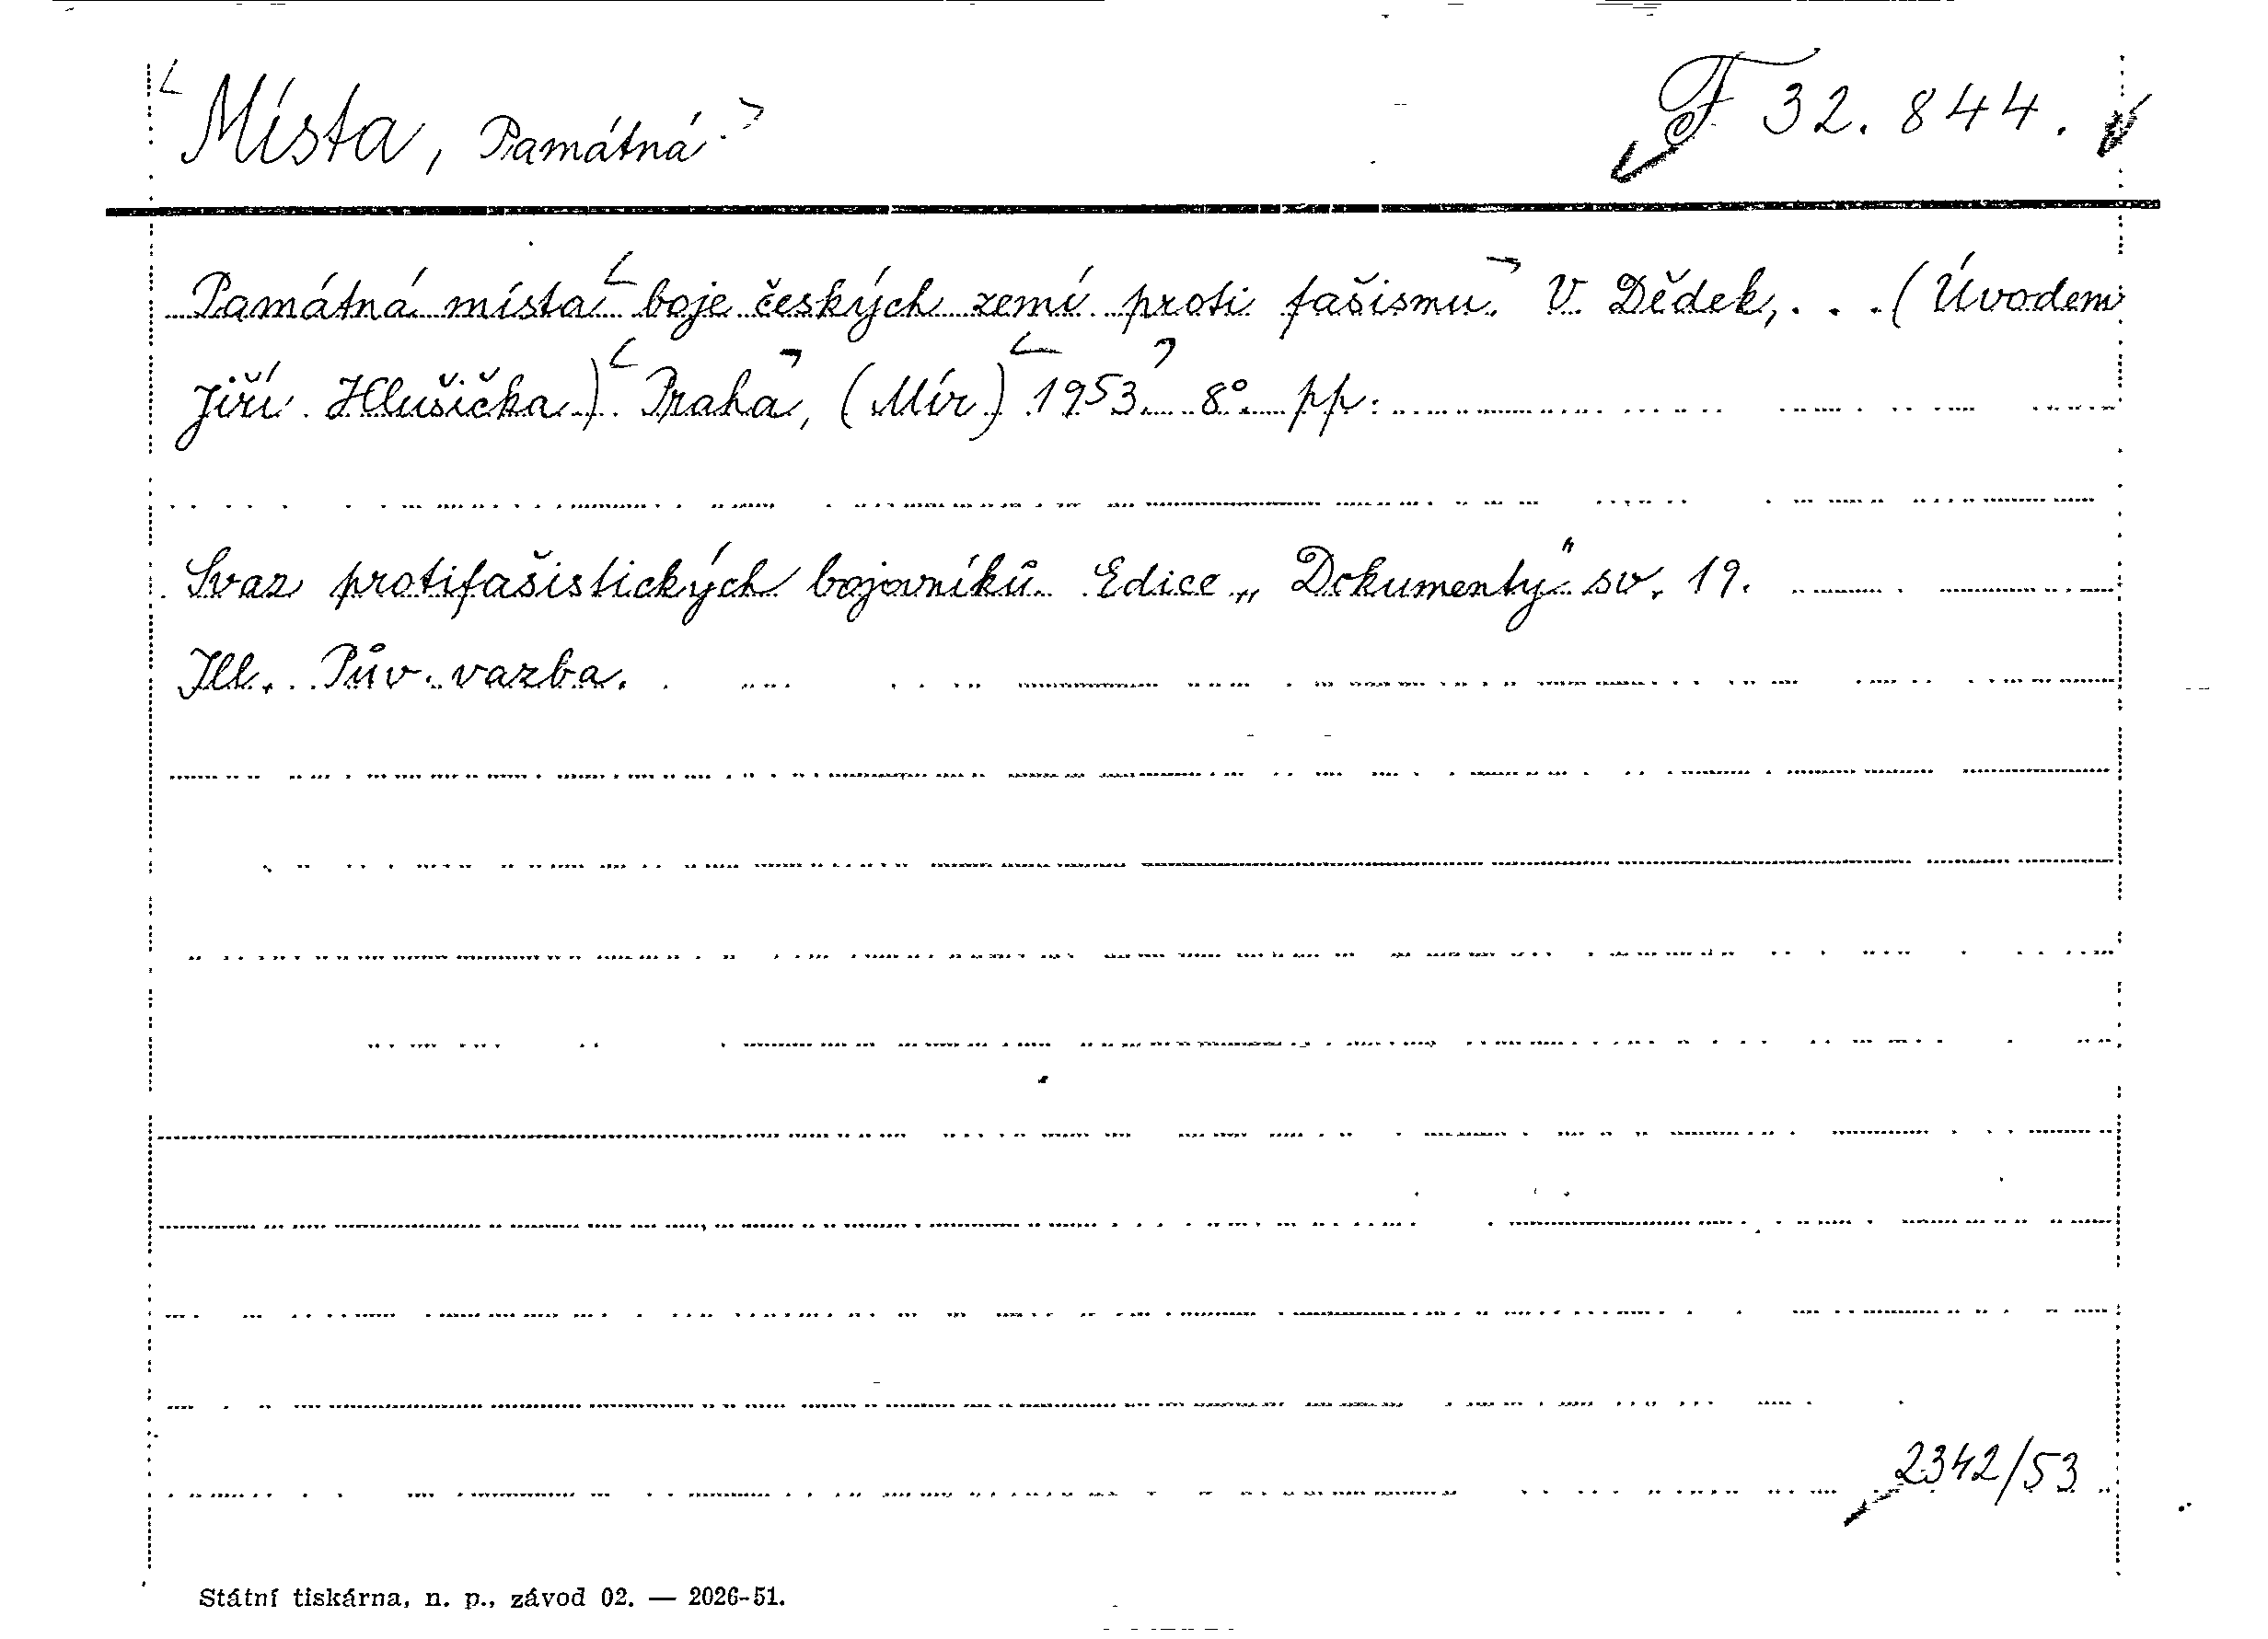 Místa, Památná.
F 32.844.
Památná místa boje českých zemí proti fašismu. V. Dědek, . . . (Úvodem
Jiří Hlušička). Praha, (Mír) 1953. 8° pp.
Svaz protifašistických bojovníků. Edice „Dokumenty" sv. 19.
Ill. Pův. vazba.
2342/53
Státní tiskárna, n. p., závod 02. — 2026-51.